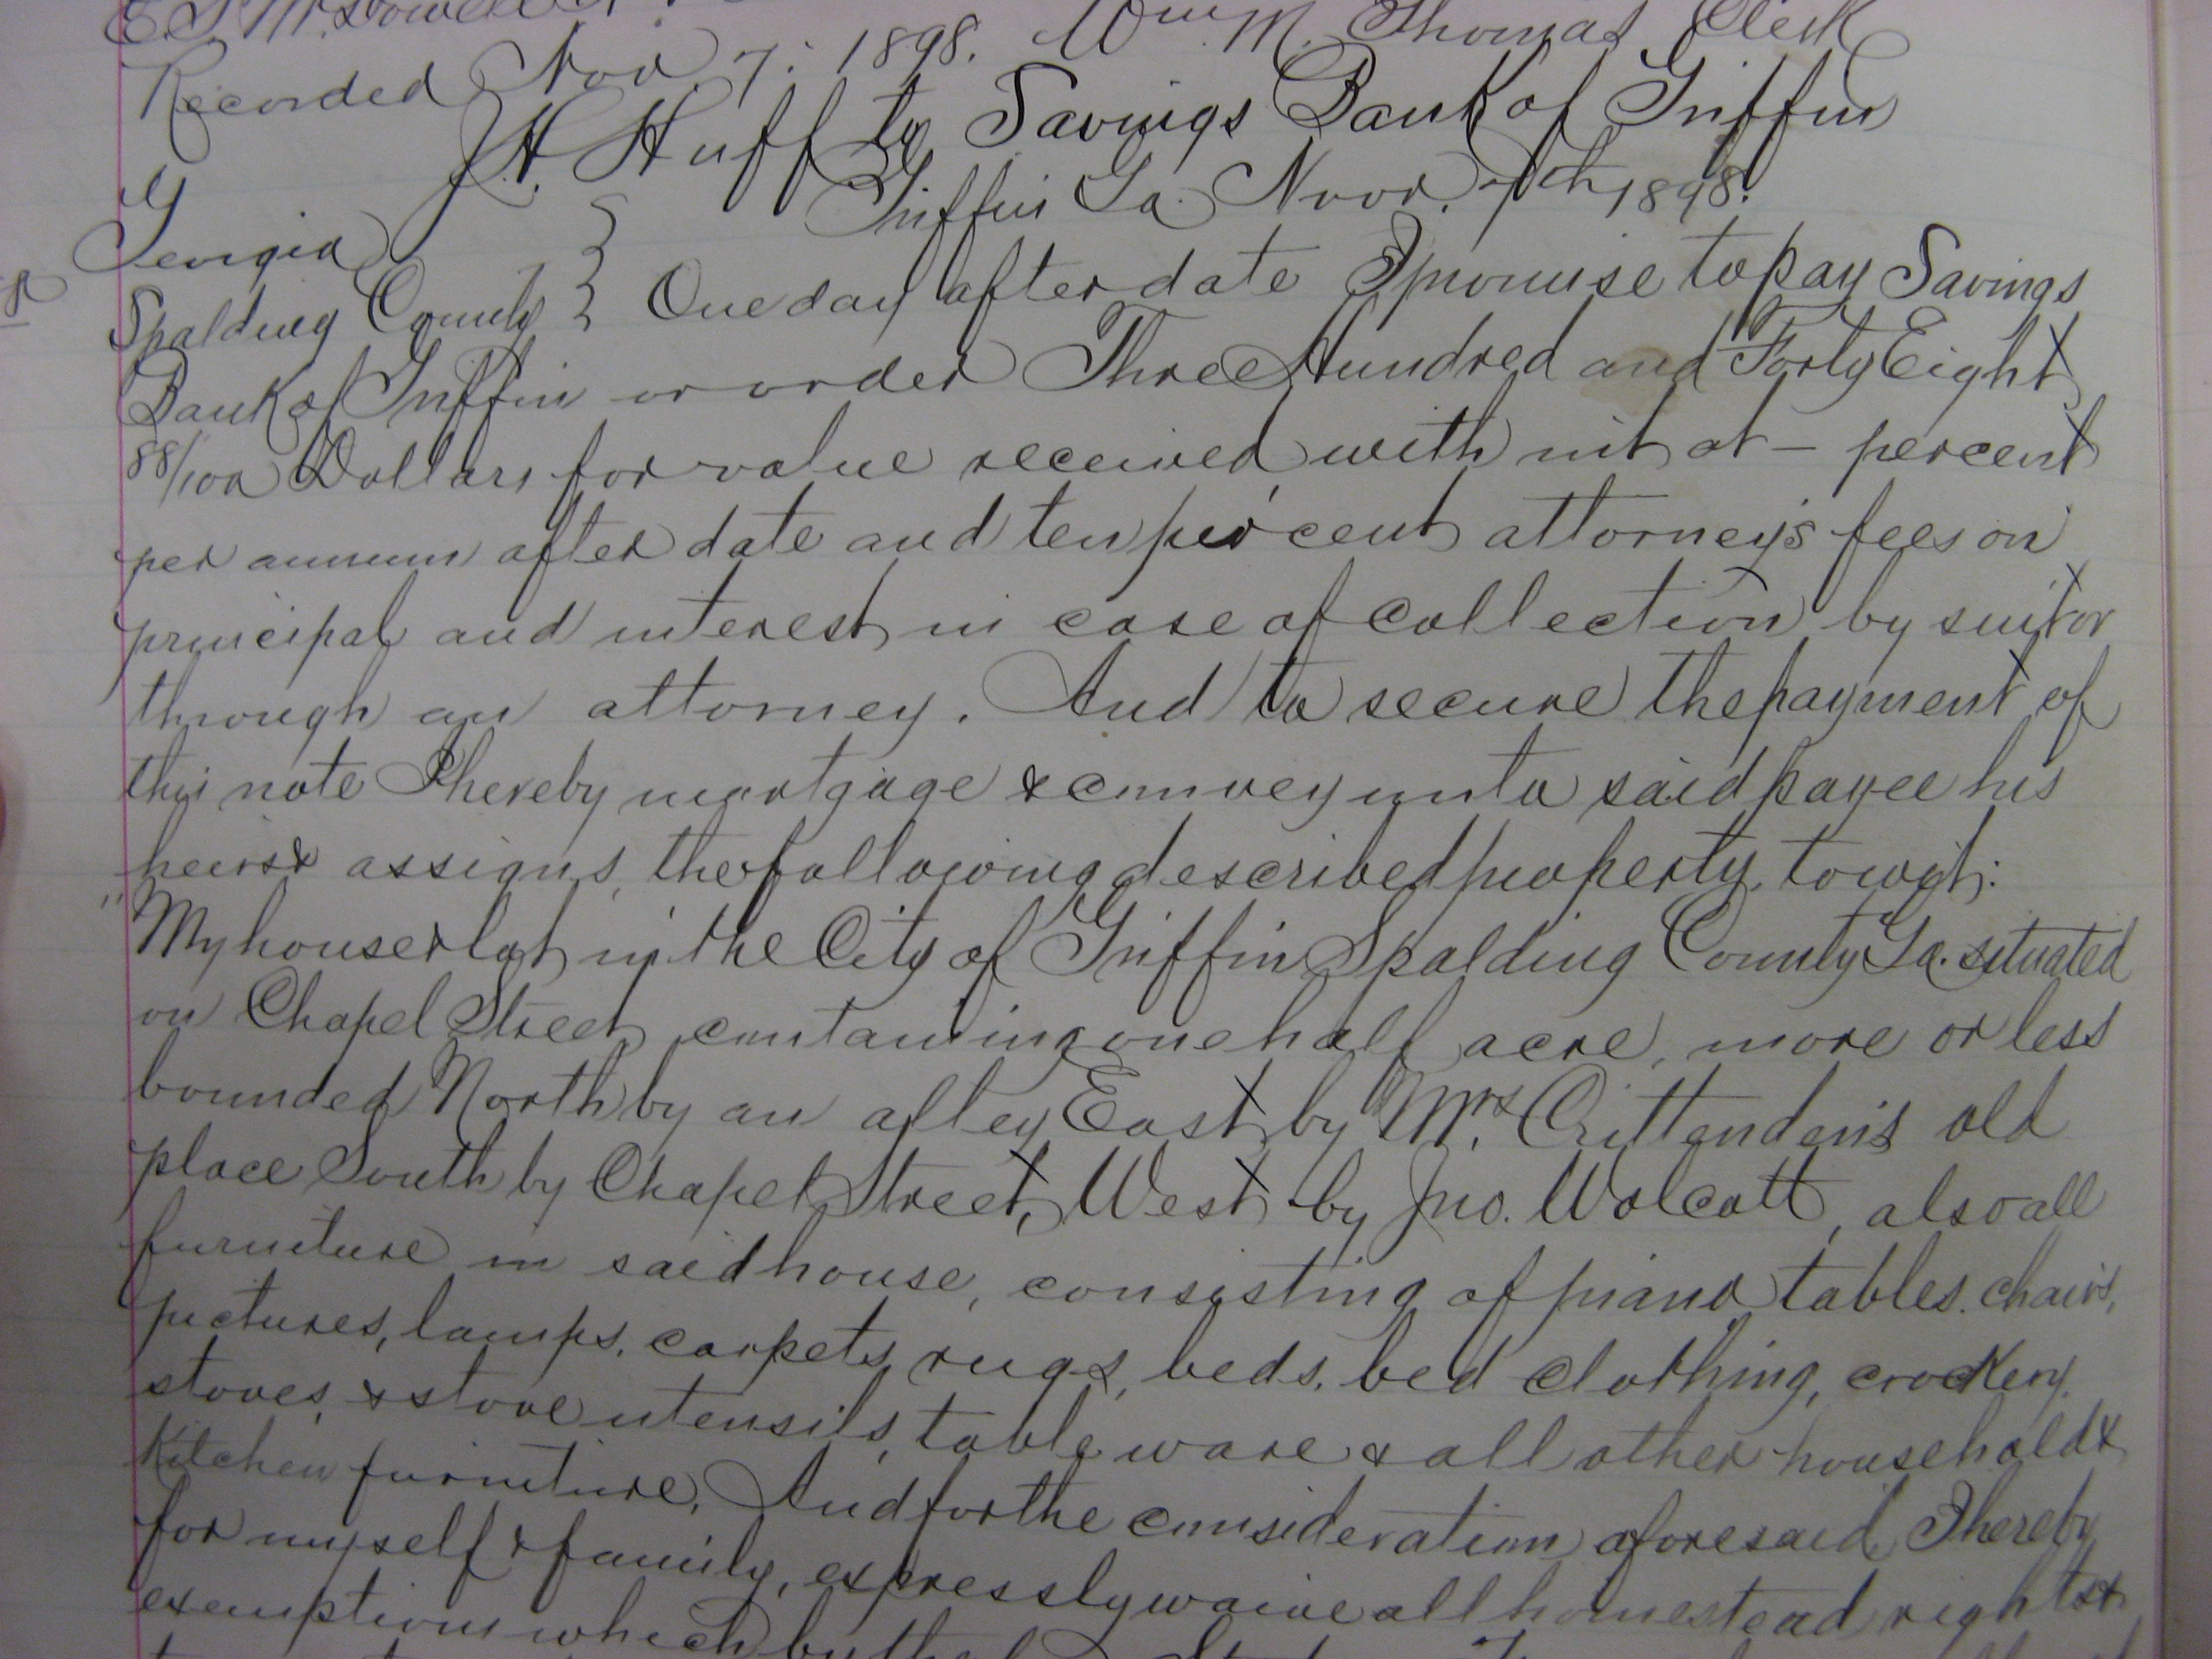 Wm. M. Thomas Clerk
Recorded Nov. 7: 1898.
J. H. Huff to Savings Bank of Griffin
Griffin Ga. Nov. 7th 1898.
Georgia
Spalding County } One day after date I promise to pay Savings
Bank of Griffin or order Three Hundred and Forty Eight
88/100 Dollars for value received, with int at — percent
per annum after date and ten per cent attorney's fees on
principal and interest in case of collection by suit or
through an attorney. And to secure the payment of
this note I hereby mortgage & convey unto said payee his
heirs & assigns, the following described property, towit:
"My house & lot in the City of Griffin Spalding County Ga. situated
on Chapel Street, containing one half acre, more or less
bounded North by an alley East by Mrs. Crittenden's old
place South by Chapel Street, West by Jno. Wolcott, also all
furniture in said house, consisting of piano, tables. chairs,
pictures, lamps. carpets, rugs, beds. bed clothing, crockery.
stoves, & stove utensils, table ware & all other household &
Kitchen furniture. And for the consideration aforesaid, I hereby
for myself & family, expressly waive all homestead rights &
exemptions which by the